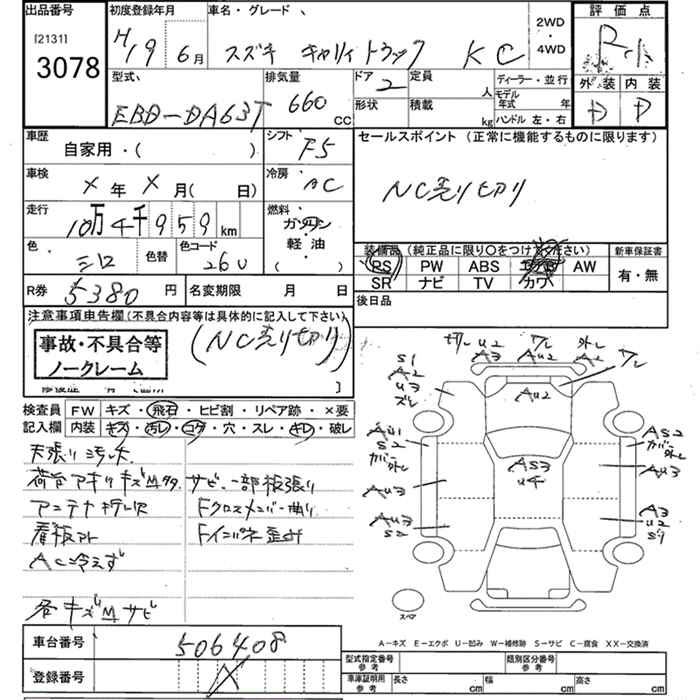 出品番号 初度登録年月 車名・グレード、 2WD・4WD 評価点
[2131] 3078 H19 6月 スズキ キャリィトラック KC R小
型式、 排気量 ドア 2 定員 人 ディーラー・並行 外装 内装
EBD-DA63T 660 cc 形状 積載 kg モデル年式 年 ハンドル 左・右 D D
車歴 自家用・( ) シフト F5 セールスポイント (正常に機能するものに限ります)
車検 X年 X月( 日) 冷房 AC NC売り切り
走行 10万4千959km 燃料 ガソリン・軽油・( )
色 シロ 色替 色コード 26U
装備品 (純正品に限り○をつけてください) 新車保証書
PS PW ABS エアB AW 有・無
SR ナビ TV カワ
R券 5380円 名変期限 月 日 後日品
注意事項申告欄(不具合内容等は具体的に記入して下さい)
事故・不具合等 ノークレーム (NC売り切り)
検査員 FW キズ・飛石・ヒビ割・リペア跡・×要
記入欄 内装 キズ・汚レ・コゲ・穴・スレ・キレ・破レ
天張り汚レ大
サビ、一部板張り
Fクロスメンバー曲り
看板アト Fインパネ歪み
AC冷えず
各キズ凹サビ
切レ U2 A3
ワレ AU2
外レ A2
ワレ
S1 A2 U3 ズレ
AU2
AU1 S2 カバー外レ
AS3 U4
AS2 カバー外レ
AU3
AU3
AU3 S2
A3 U2 S1
スペア
A-キズ E-エクボ U-凹み W-補修跡 S-サビ C-腐食 XX-交換済
車台番号 506408
型式指定番号 参考 類別区分番号 参考
登録番号
車庫証明用 参考 長さ cm 幅 cm 高さ cm